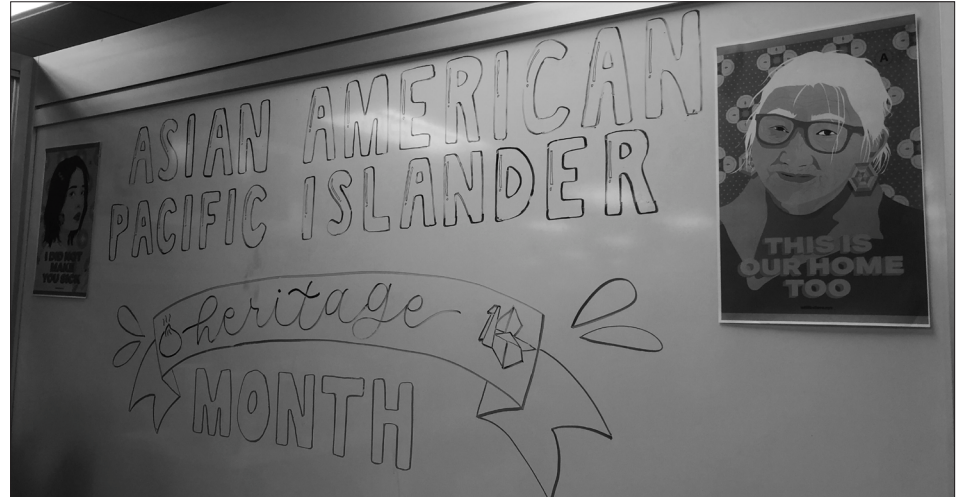 ASIAN AMERICAN
PACIFIC ISLANDER
heritage
MONTH
I DID NOT
MAKE
YOU SICK
THIS IS
OUR HOME
TOO